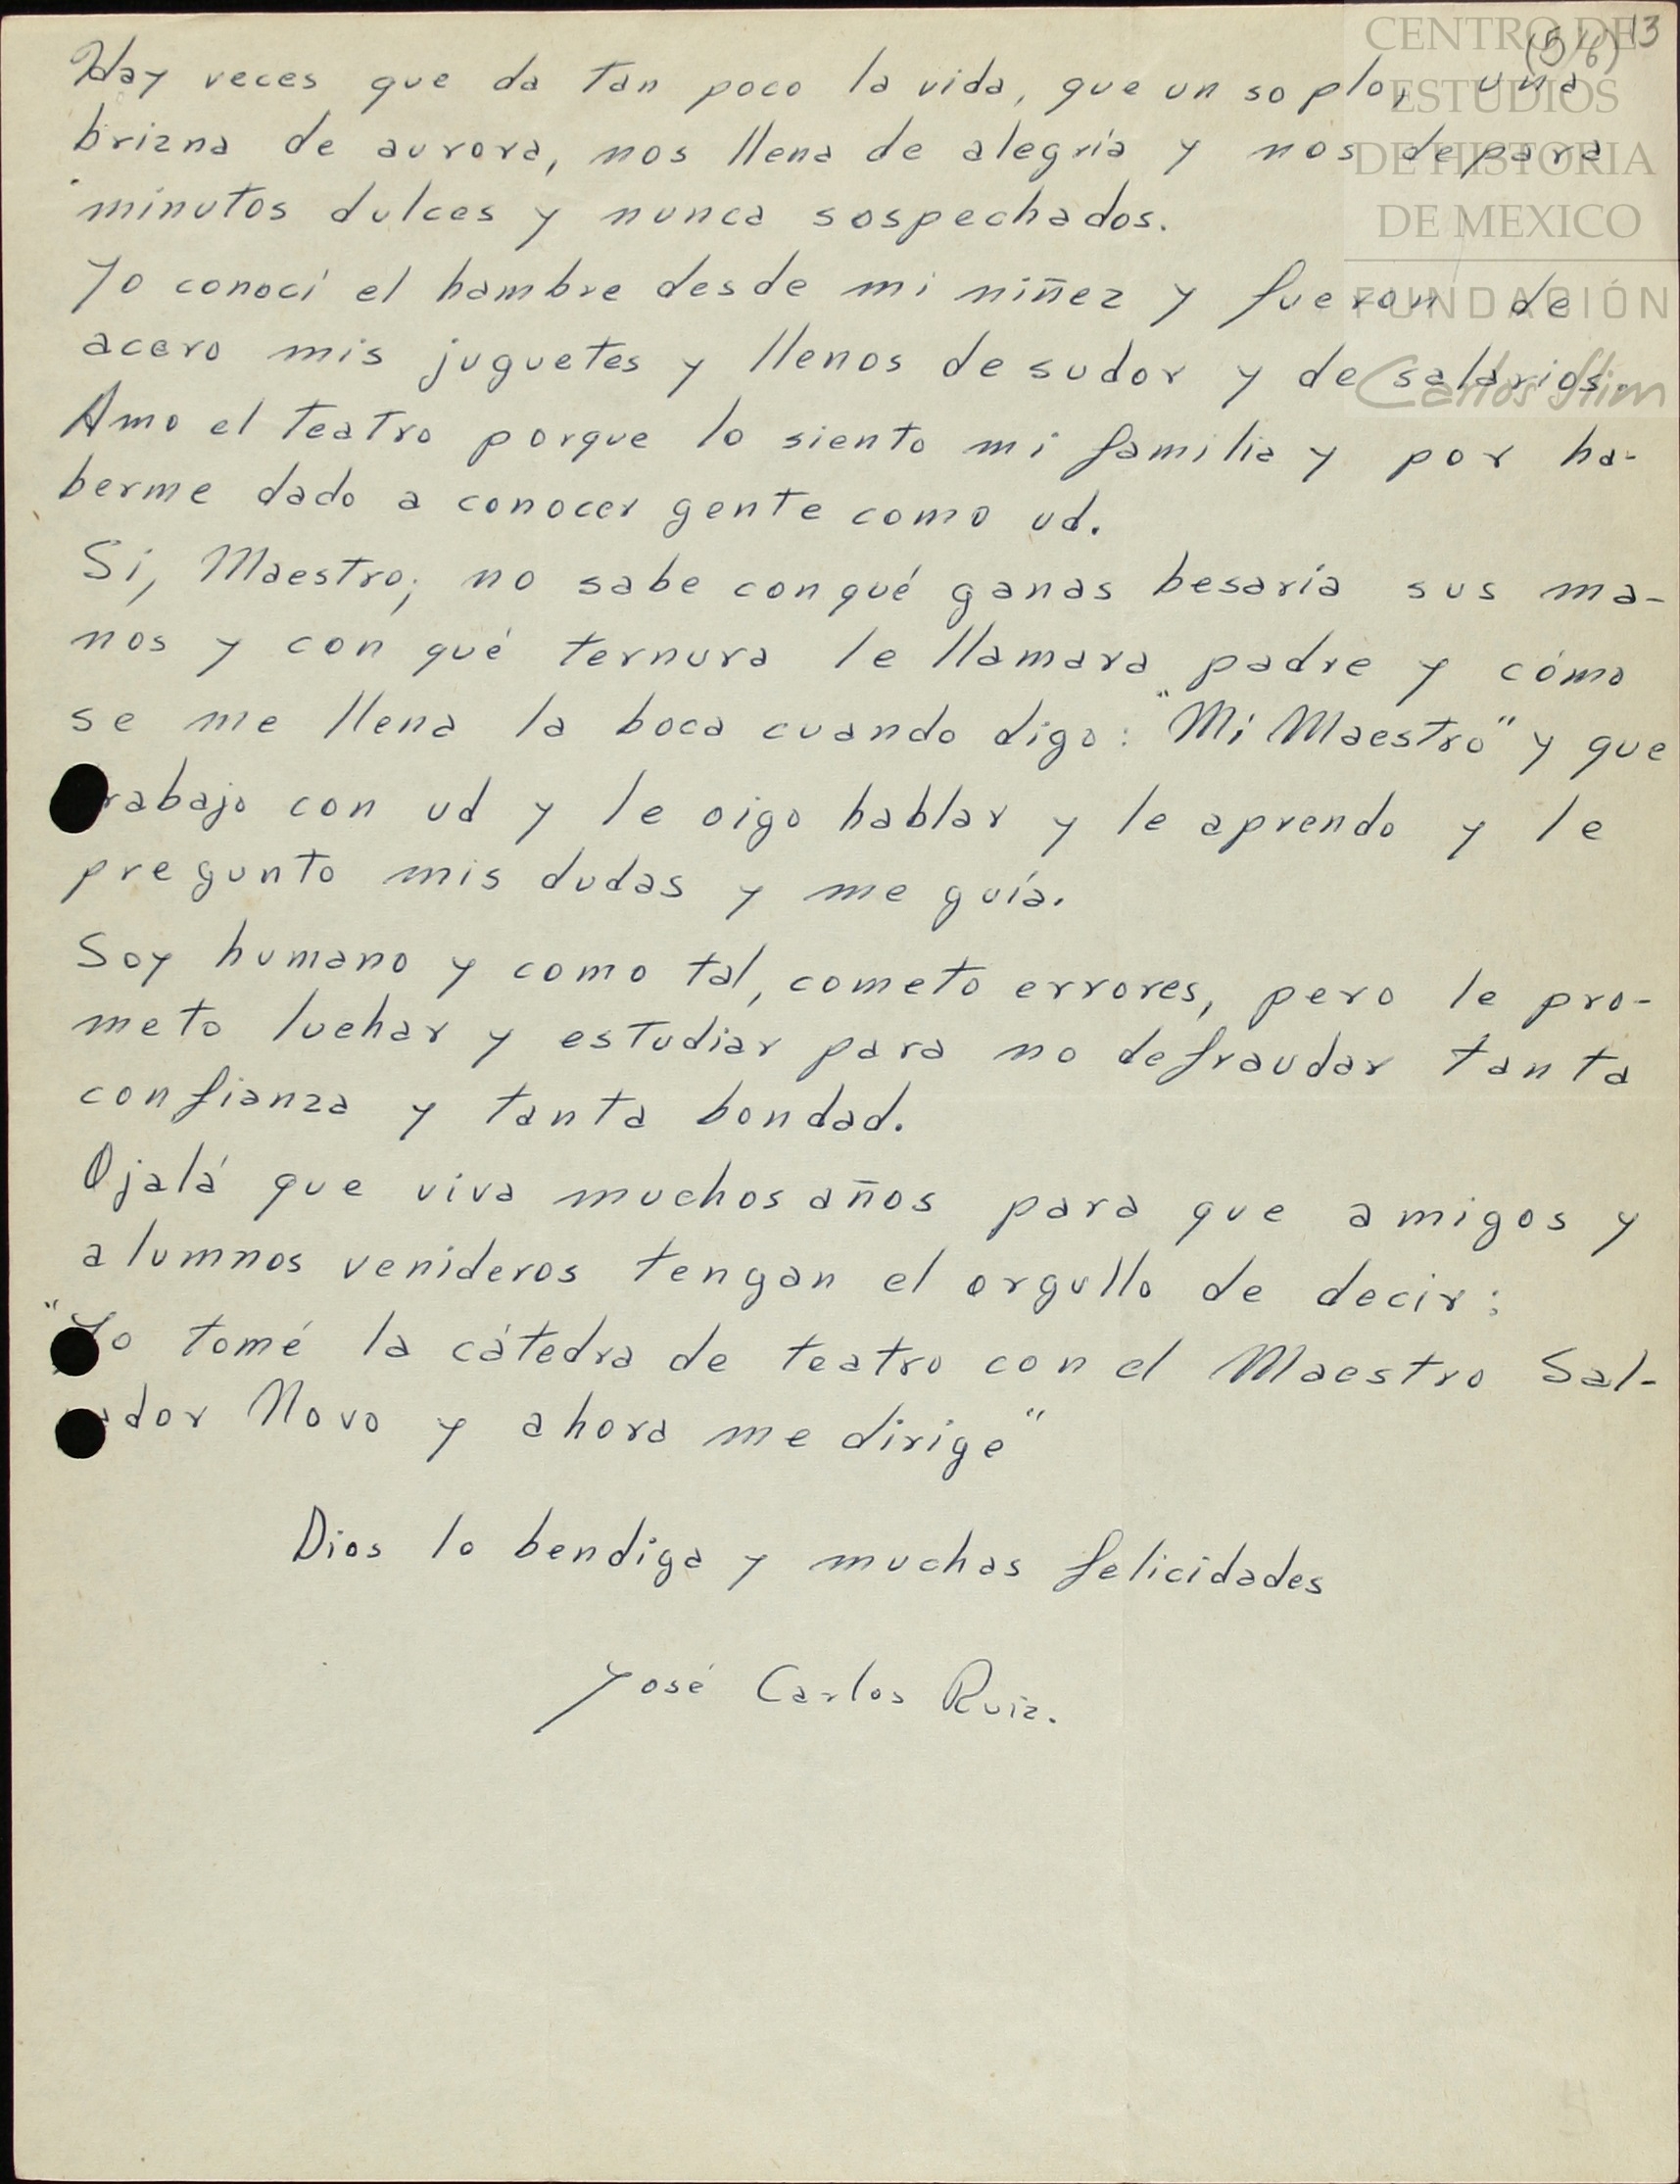 13
(5/6)
CENTRO DE
ESTUDIOS
DE HISTORIA
DE MEXICO
FUNDACIÓN
Carlos Slim
Hay veces que da tan poco la vida, que un soplo, una
brizna de aurora, nos llena de alegría y nos depara
minutos dulces y nunca sospechados.
Yo conocí el hambre desde mi niñez y fueron de
acero mis juguetes y llenos de sudor y de salarios.
Amo el teatro porque lo siento mi familia y por ha-
berme dado a conocer gente como ud.
Sí, Maestro; no sabe con qué ganas besaría sus ma-
nos y con qué ternura le llamara padre y cómo
se me llena la boca cuando digo: "Mi Maestro" y que
rabajo con ud y le oigo hablar y le aprendo y le
pregunto mis dudas y me guía.
Soy humano y como tal, cometo errores, pero le pro-
meto luchar y estudiar para no defraudar tanta
confianza y tanta bondad.
Ojalá que viva muchos años para que amigos y
alumnos venideros tengan el orgullo de decir:
"Yo tomé la cátedra de teatro con el Maestro Sal-
ador Novo y ahora me dirige"
Dios lo bendiga y muchas felicidades
José Carlos Ruiz.